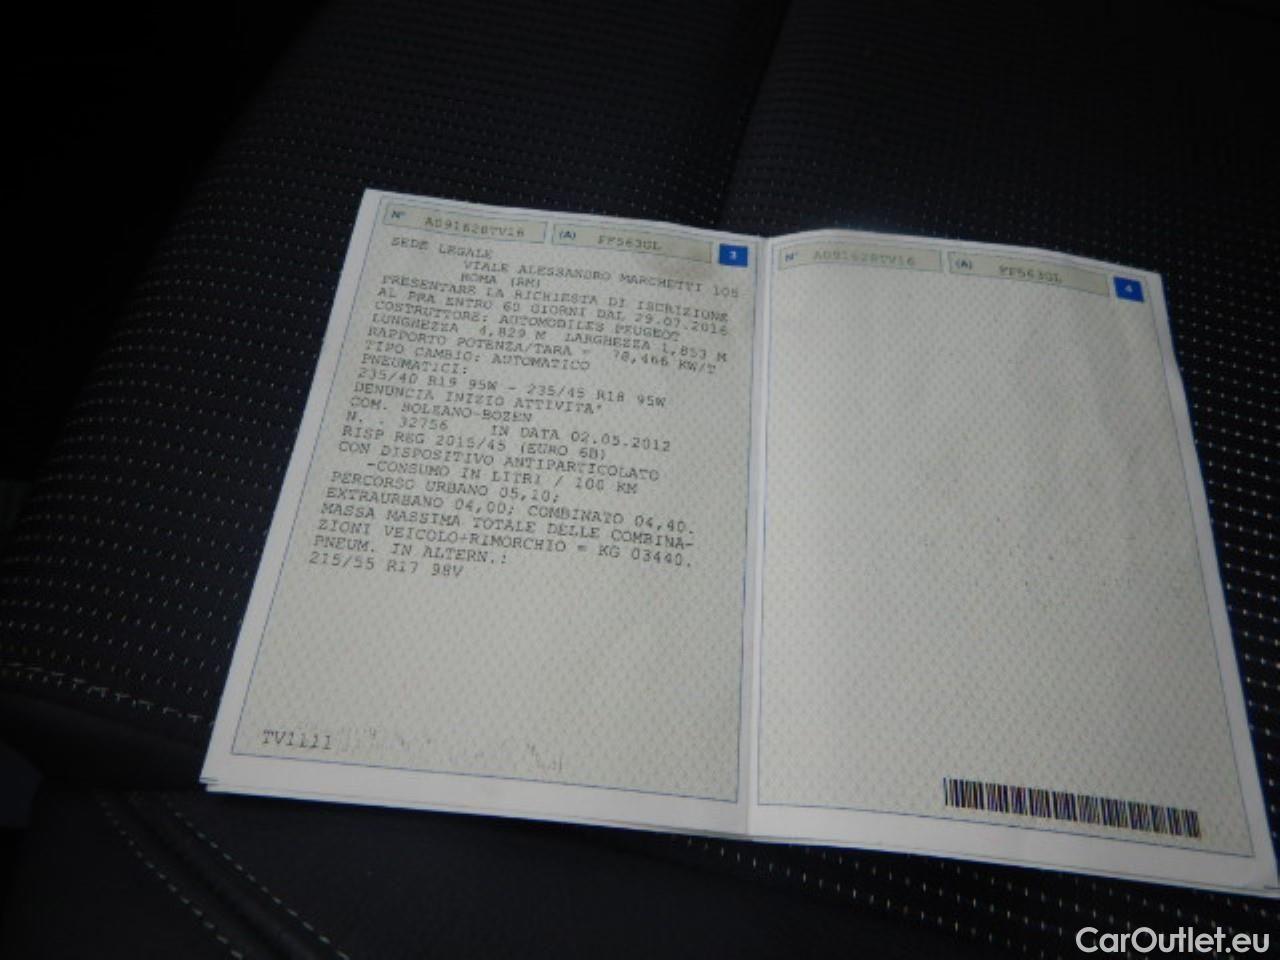 N° A091628TV16 (A) FF563GL 3
SEDE LEGALE
VIALE ALESSANDRO MARCHETTI 105
ROMA (RM)
PRESENTARE LA RICHIESTA DI ISCRIZIONE
AL PRA ENTRO 60 GIORNI DAL 29.07.2016
COSTRUTTORE: AUTOMOBILES PEUGEOT
LUNGHEZZA 4,829 M LARGHEZZA 1,853 M
RAPPORTO POTENZA/TARA = 78,466 KW/T
TIPO CAMBIO: AUTOMATICO
PNEUMATICI:
235/40 R19 95W - 235/45 R18 95W
DENUNCIA INIZIO ATTIVITA'
COM. BOLZANO-BOZEN
N. . 32756 IN DATA 02.05.2012
RISP REG 2015/45 (EURO 6B)
CON DISPOSITIVO ANTIPARTICOLATO
-CONSUMO IN LITRI / 100 KM
PERCORSO URBANO 05,10;
EXTRAURBANO 04,00; COMBINATO 04,40.
MASSA MASSIMA TOTALE DELLE COMBINA-
ZIONI VEICOLO+RIMORCHIO = KG 03440.
PNEUM. IN ALTERN.:
215/55 R17 98V
TV1111
N° A091628TV16 (A) FF563GL 4
CarOutlet.eu